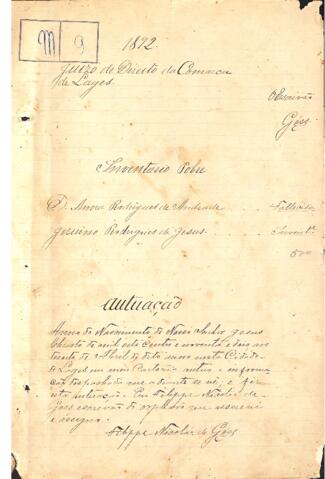 M 9
1892
Juizo de Direito da Comarca
de Lages.
Escrivão
Góes
Inventario Pobre
D. Anna Rodrigues de Andrade Fallecida
Jesuino Rodrigues de Jesus. Invent.te
500
Autuação
Anno do Nascimento de Nosso Senhor Jesus
Christo de mil oito centos e noventa e dois aos
trinta de Abril do dito anno nesta Cidade
de Lages em meu Cartorio autuo a
que adiante se vê, e fiz
esta autuação. Eu Felippe Nicolau de
Góes escrivão de orphãos que escrevi
e assigno.
Felippe Nicolau de Góes